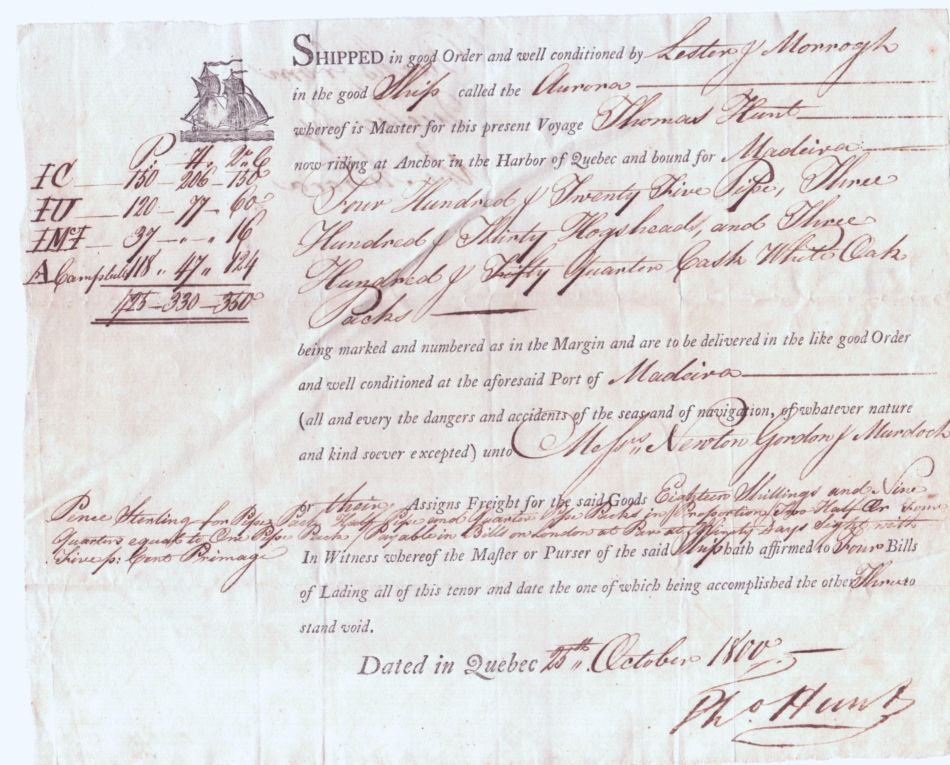 SHIPPED in good Order and well conditioned by Lester & Morrogh
in the good Ship called the Aurora
whereof is Master for this present Voyage Thomas Hunt
now riding at Anchor in the Harbor of Quebec and bound for Madeira
P. H. Qr C
IC 150 - 206 - 150
IU 120 - 77 - 60
IMcI 37 - " - " 16
A Campbell 118 " 47 " 124
425 - 330 - 350
Four Hundred & Twenty Five Pipe, Three
Hundred & Thirty Hogsheads, and Three
Hundred & Fifty Quarter Cask White Oak
Packs
being marked and numbered as in the Margin and are to be delivered in the like good Order
and well conditioned at the aforesaid Port of Madeira
(all and every the dangers and accidents of the seas and of navigation, of whatever nature
and kind soever excepted) unto Messrs,, Newton Gordon & Murdoch
or their Assigns Freight for the said Goods Eighteen Shillings and Nine
Pence Sterling for Pipe Pack Half Pipe and Quarter Pipe Packs in Proportion, Two Half Or Four
Quarters equal to One Pipe Pack, Payable in Bills on London at Par at Ninety days Sight with
Five p: Cent Primage
In Witness whereof the Master or Purser of the said Ship hath affirmed to Four Bills
of Lading all of this tenor and date the one of which being accomplished the other Three to
stand void.
Dated in Quebec 25th,, October 1800
Tho Hunt